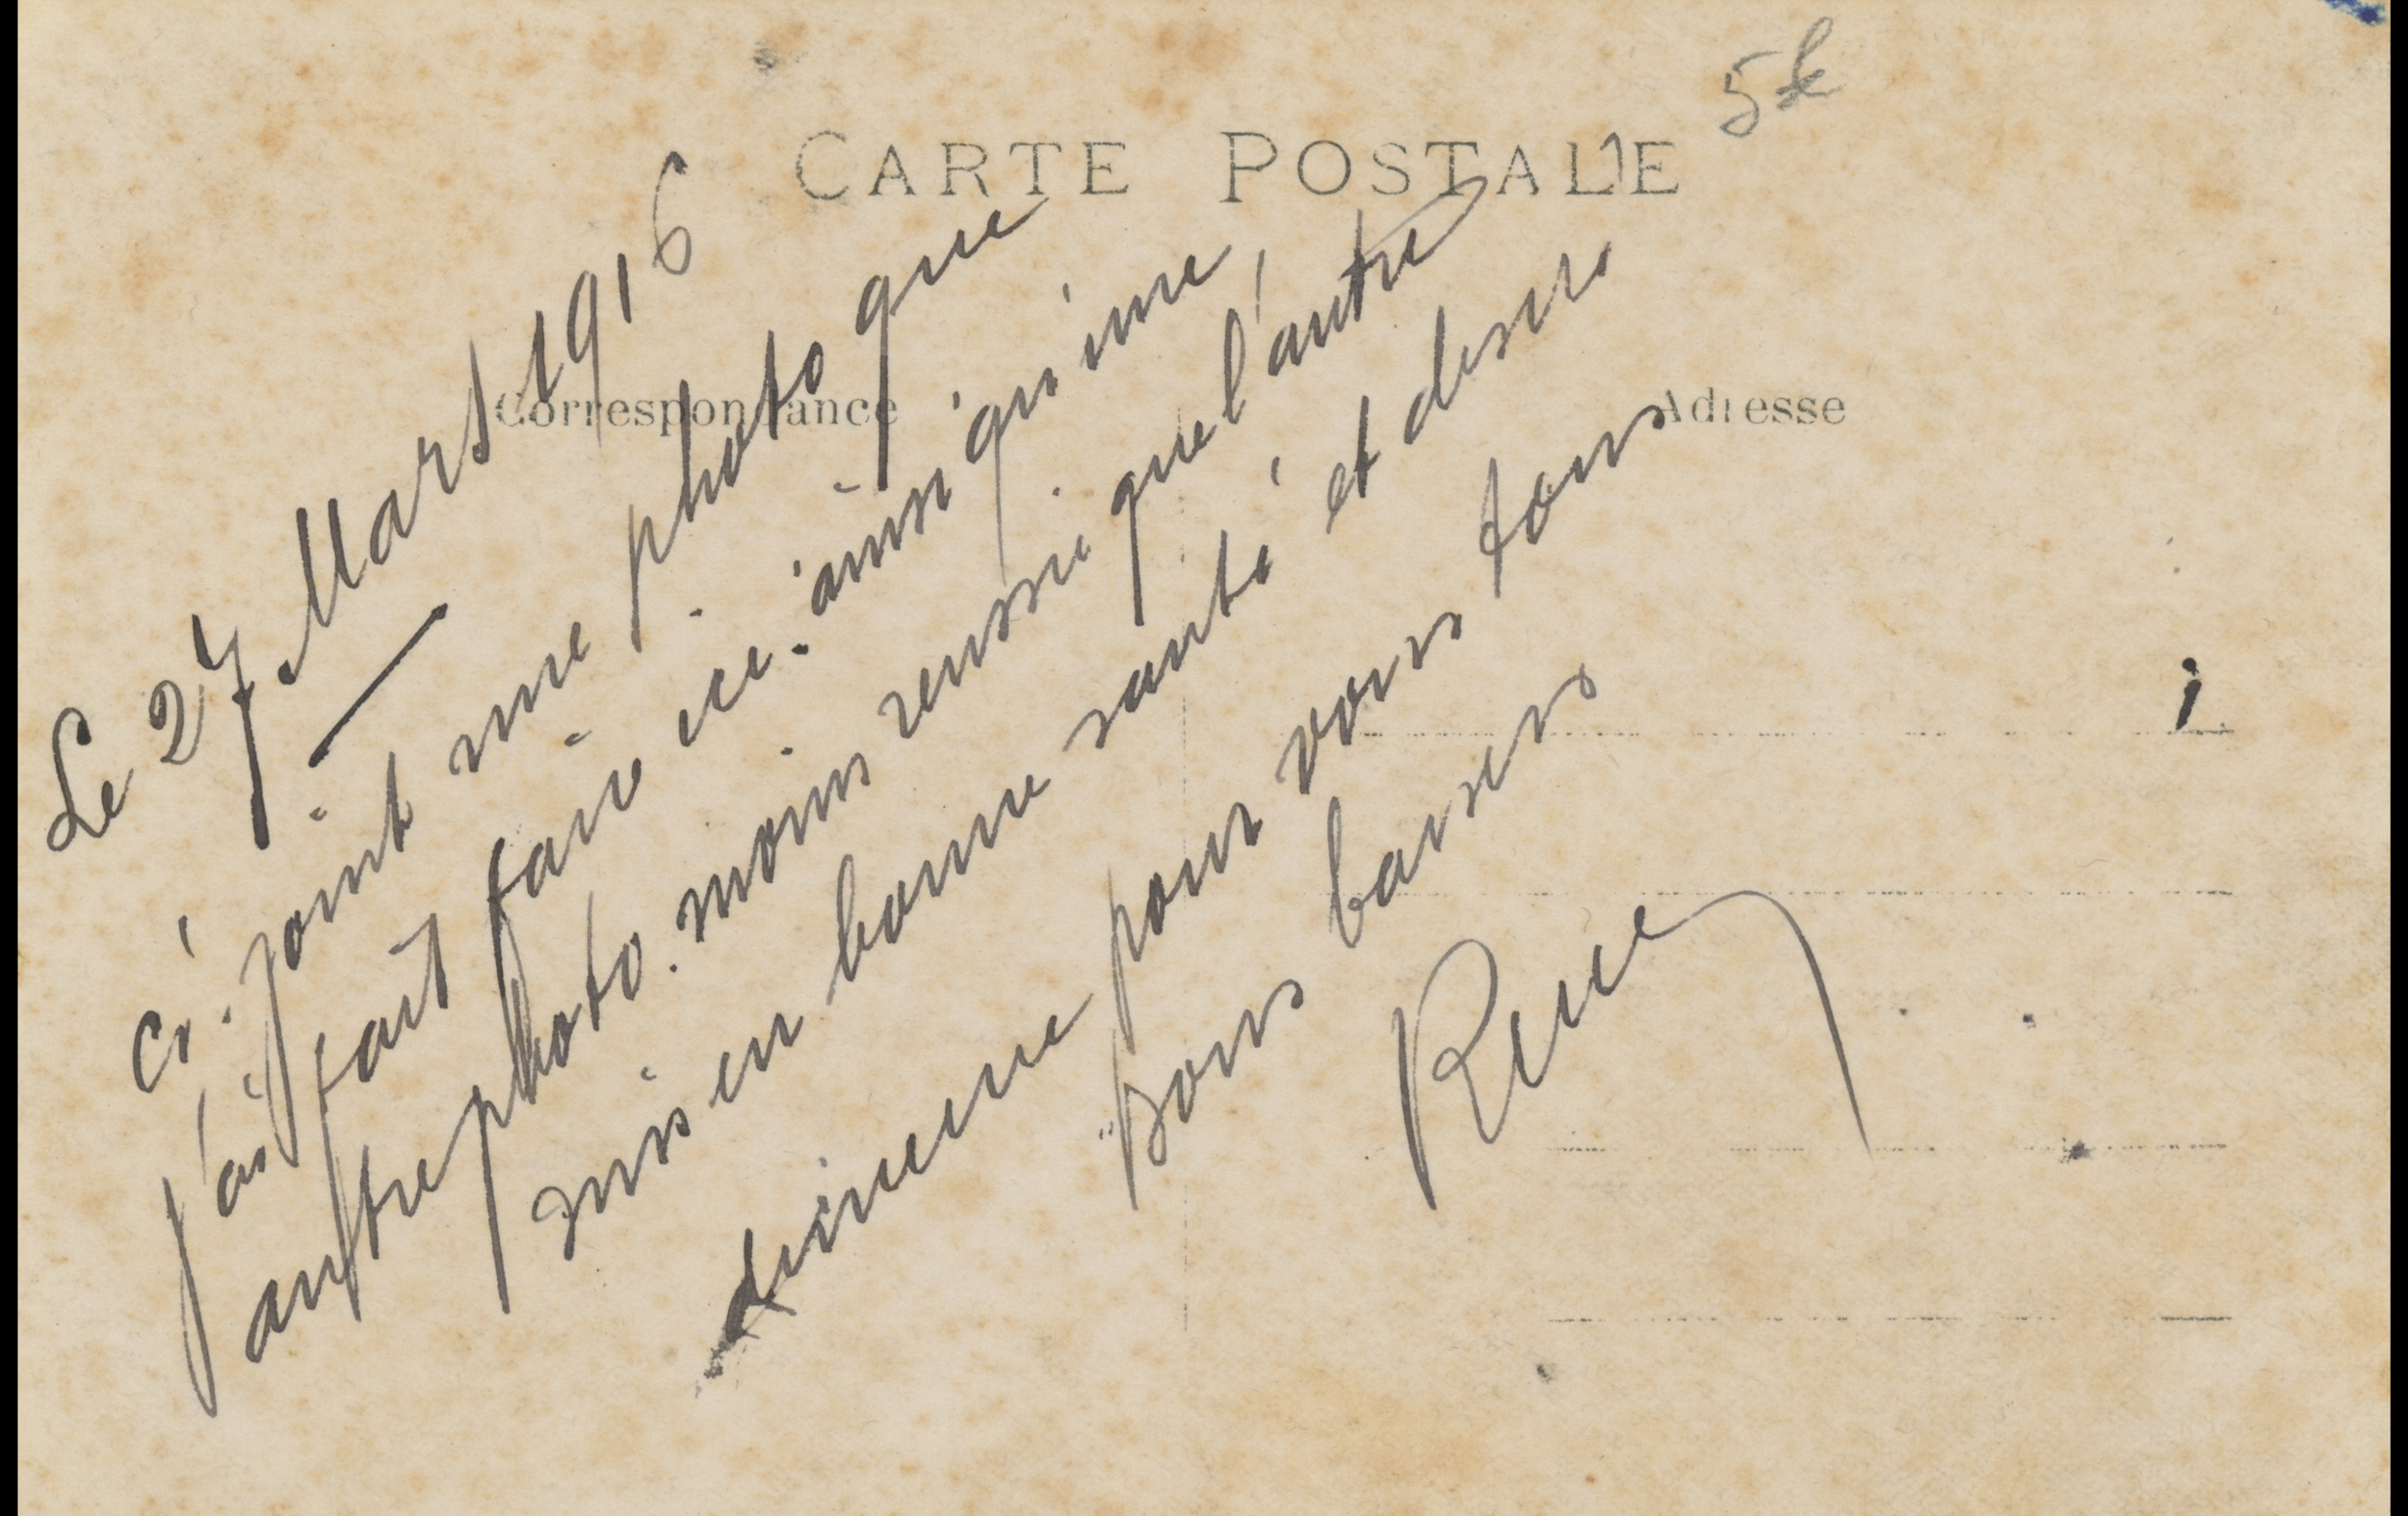 CARTE POSTALE
5k
Correspondance
Adresse
Le 27 Mars 1916
Ci-joint une photo que
j'ai fait faire ici. ainsi qu'une
autre photo. moins reussie que l'autre
suis en bonne santé et desire
de meme pour vous tous
Bons baisers
Rene